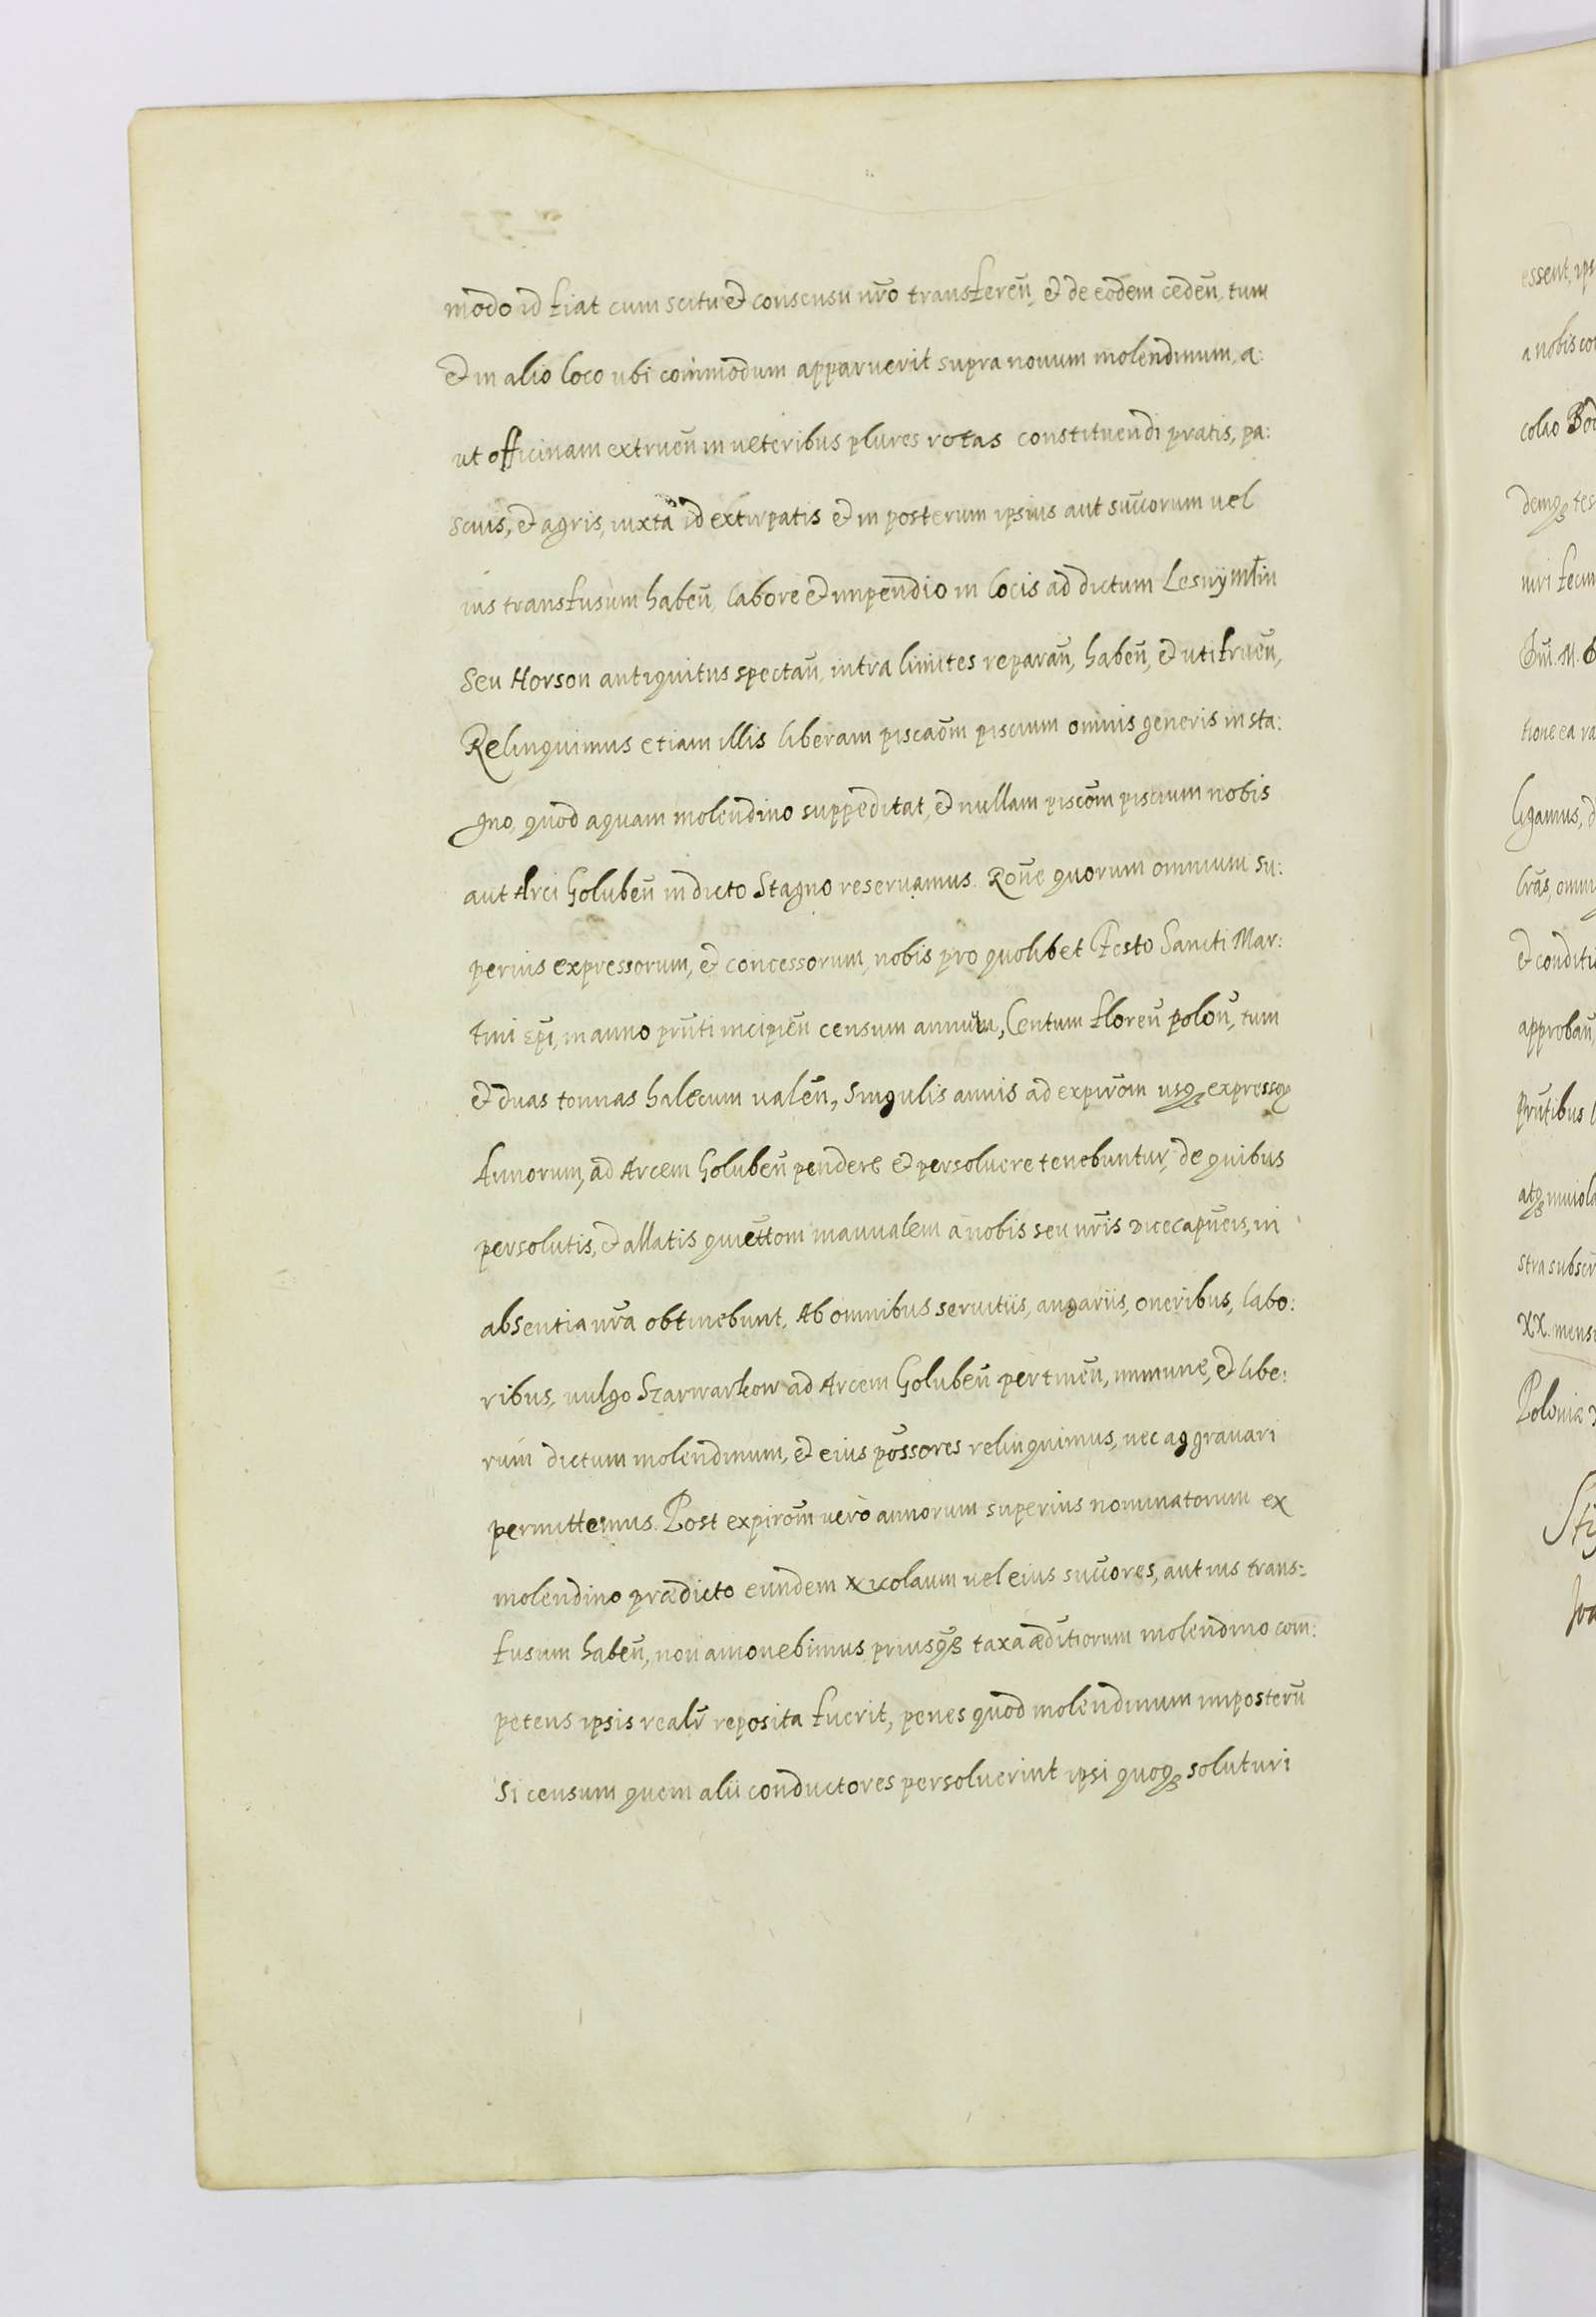 modo id fiat cum scitu et consensu nr̄o transferen̄, et de eodem ceden̄, tum
et in alio loco ubi commodum apparuerit supra nouum molendinum, a:
ut officinam extruen̄ in ueteribus plures rotas constituendi pratis, pa:
scuis, et agris, iuxta id extirpatis et in posterum ipsius aut succorum uel
ius transfusum haben̄, labore et impendio in locis ad dictum Lesny młin
Seu Horson antiquitus spectan̄, intra limites reparan̄, haben̄, et uti fruen̄,
Relinquimus etiam illis liberam piscaōm piscium omnis generis in sta:
gno, quod aquam molendino suppeditat, et nullam piscōm piscium nobis
aut Arci Goluben̄ in dicto Stagno reseruamus. Rōne quorum omnium su:
perius expressorum, et concessorum, nobis pro quolibet Festo Sancti Mar:
tini Ep̄i, in anno pr̄nti incipien̄ censum annuum, Centum floren̄ polon̄, tum
et duas tonnas halecum ualen̄, Singulis annis ad expirōm usq₃ expressoꝝ
Annorum, ad Arcem Goluben̄ pendere et persoluere tenebuntur, de quibus
persolutis, et allatis quiettōm manualem a nobis seu nr̄is Vicecapn̄eis, in
absentia nr̄a obtinebunt. Ab omnibus seruitiis, angariis, oneribus, labo:
ribus, uulgo Szarwarkow ad Arcem Goluben̄ pertinen̄, immune, et libe:
rum dictum molendinum, et eius pōssores relinquimus, nec aggrauari
permittemus. Post expirōm uerò annorum superius nominatorum ex
molendino prædicto eundem Nicolaum uel eius succores, aut ius trans:
fusum haben̄, non amouebimus, priusq₃ taxa ædificiorum molendino com:
petens ipsis realr̄ reposita fuerit, penes quod molendinum imposterū
Si censum quem alii conductores persoluerint ipsi quoq₃ soluturi